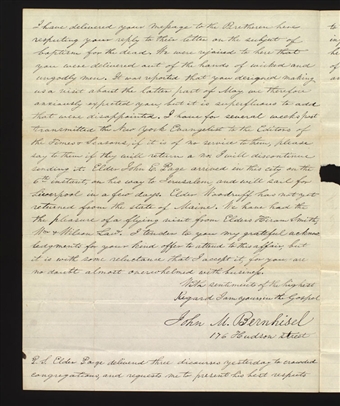 I have delivered your message to the Brethren here
respecting your reply to their letter on the subject of
baptism for the dead. We were rejoiced to hear that
you were delivered out of the hands of wicked and
ungodly men. It was reported that you designed making
us a visit about the latter part of May we therefore
anxiously expected you, but it is superfluous to add
that were disappointed. I have for several weeks past
transmitted the New York Evangelist to the Editors of
the Times & Seasons, if it is of no service to them, please
say to them if they will return a no I will discontinue
sending it. Elder John E. Page arrived in this city on the
6th instant, on his way to Jerusalem, and will sail for
Liverpool in a few days. Elder Woodruff has not yet
returned from the state of Maine. We have had the
the pleasure of a flying visit from Elders Hiram Smith,
Wm & Wilson Law. I tender to you my grateful acknow
ledgments for your kind offer to attend to this affair, but
it is with some reluctance that I accept it, for you are
no doubt almost overwhelmed with business.
With sentiments of the highest
Regard I am yours in the Gospel
John M. Bernhisel
176 Hudson Street
P.S. Elder Page delivered three discourses yesterday to crowded
congregations, and requests me to present his best respects